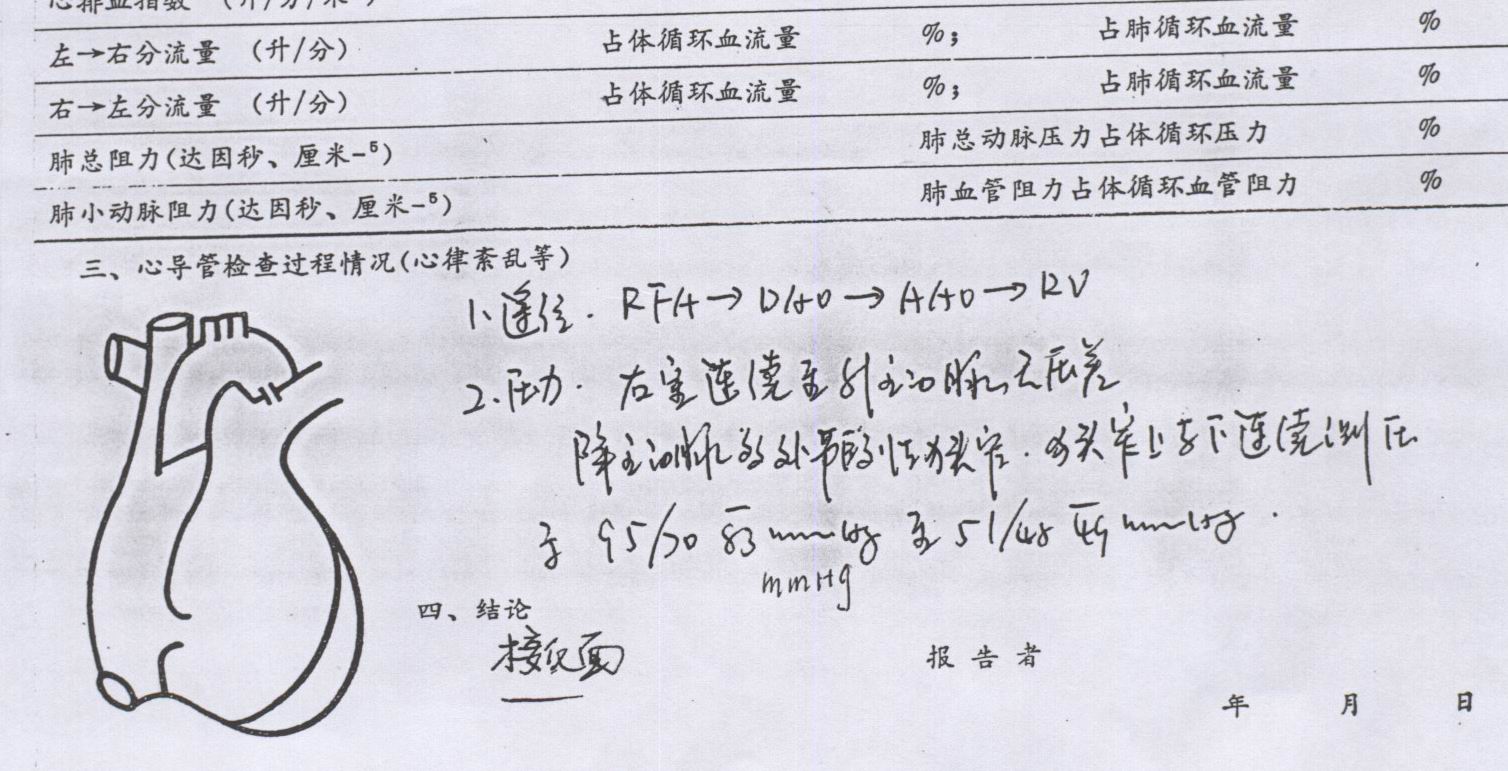 心排血指数 (升/分/米²)
左→右分流量 (升/分) 占体循环血流量 %; 占肺循环血流量 %
右→左分流量 (升/分) 占体循环血流量 %; 占肺循环血流量 %
肺总阻力(达因秒、厘米-⁵) 肺总动脉压力占体循环压力 %
肺小动脉阻力(达因秒、厘米-⁵) 肺血管阻力占体循环血管阻力 %
三、心导管检查过程情况(心律紊乱等)
1、途径. RFA→DAO→AAO→RV
2.压力. 右室连续至升主动脉无压差
降主动脉 处节段性狭窄. 狭窄上至下连续测压
95/70 83 mmHg 至 51/48 49 mmHg.
mmHg
四、结论
接反面
报告者
年 月 日